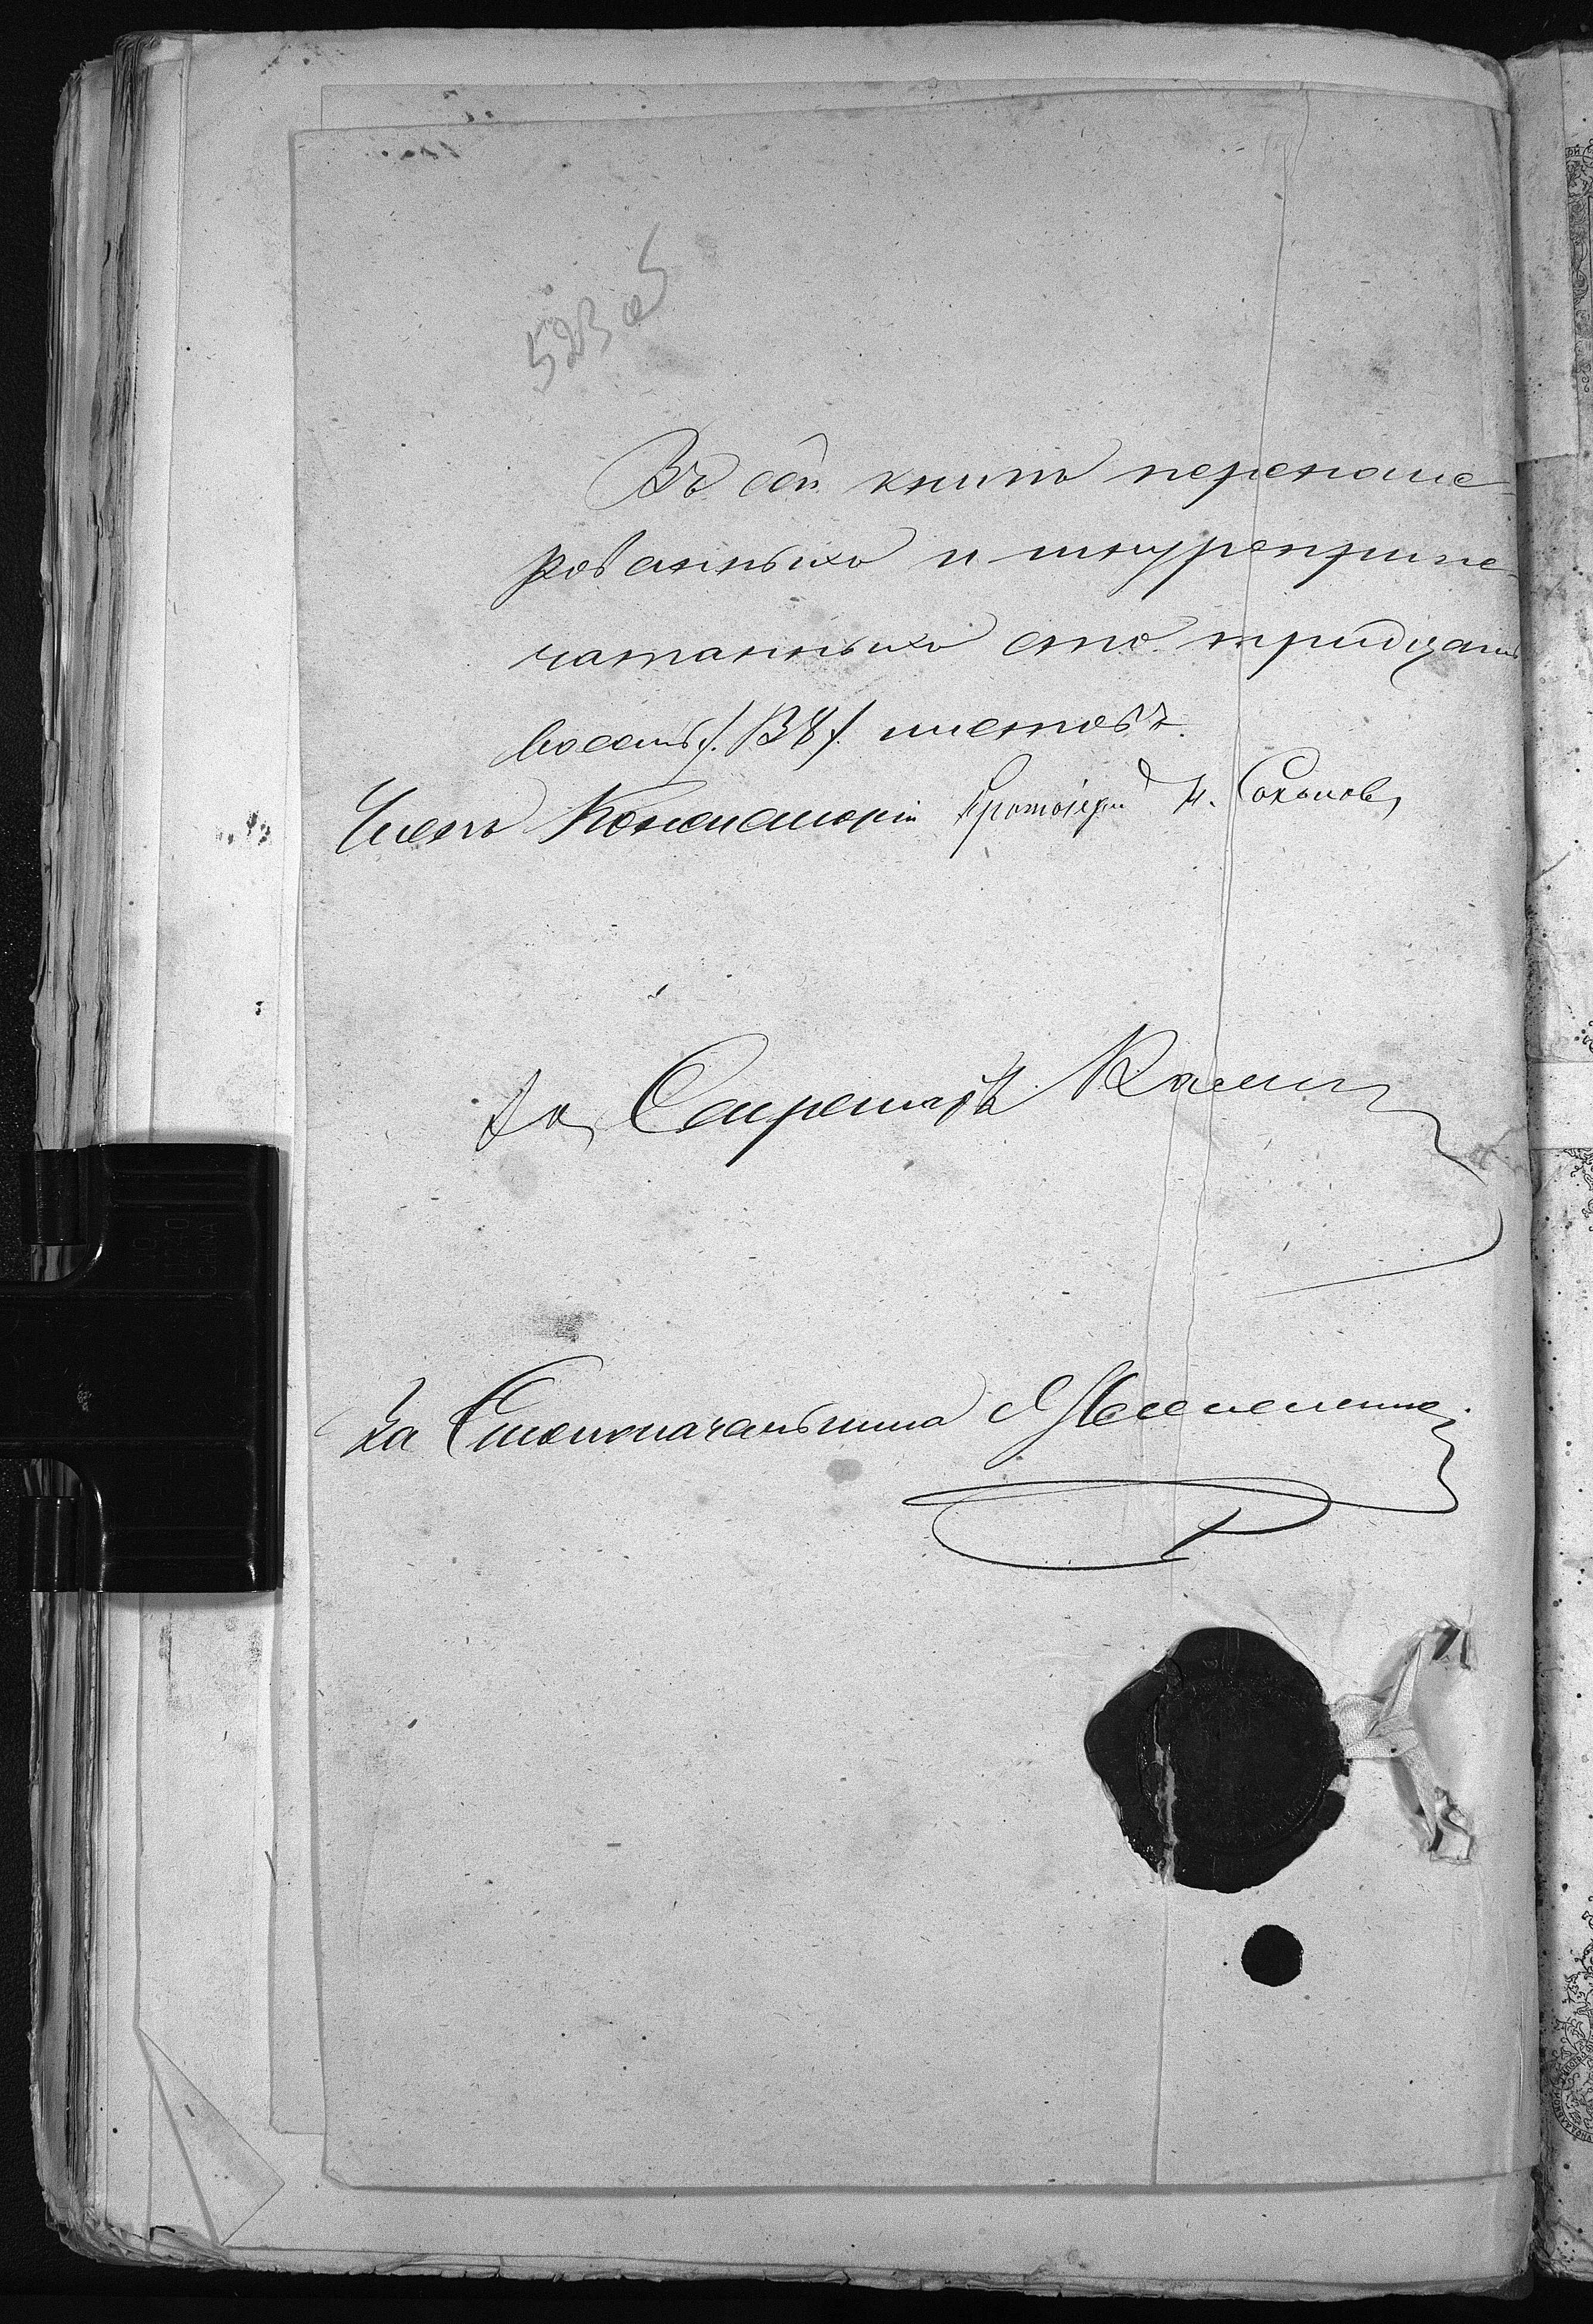 523 об
Въ сей книгѣ перенуме-
рованныхъ и шнуроприпе-
чатанныхъ сто тридцать
восемь /. 138 /. листовъ.
Членъ Консисторіи Протоіерей Н. Соколовъ
За Секретаря
За Столоначальника